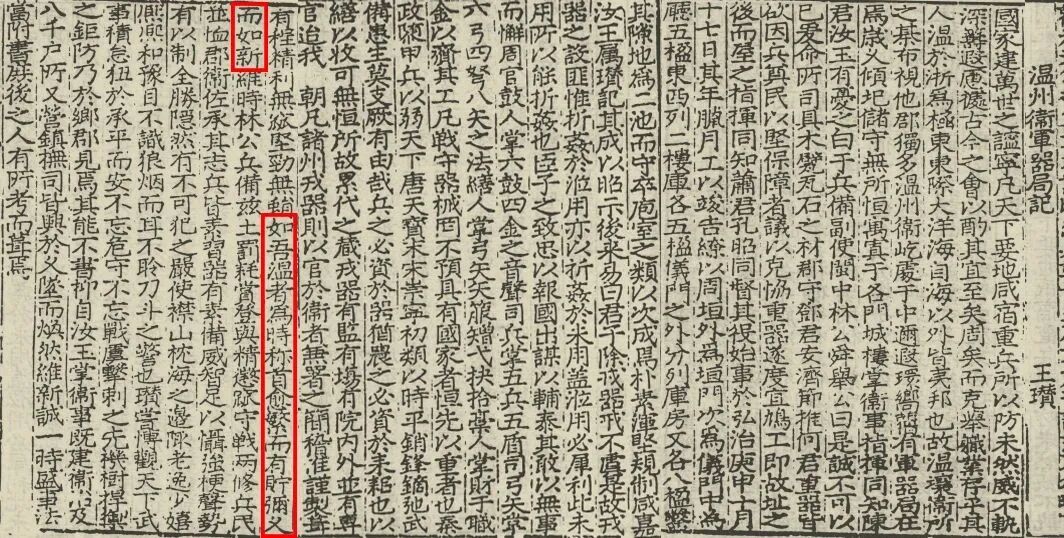 温州衛軍器局記　王瓚
國家建萬世之謐寧凡天下要地咸宿重兵所以防未然威不軌
深籌遐慮邁古今之會以酌其宜至矣周矣而克舉職業存乎其
人温於浙爲極東東際大洋海自海以外皆夷邦也故温襟衛所
之棊布視他郡獨多温州衛屹處于中邇遐環嚮舊有軍器局在
焉歲久傾圮儲守無恒寓寘于各門城樓掌衛事指揮同知陳
君汝玉有憂之白于兵備副使閩中林公舜舉公曰是誠不可以
已爰命所司具木甓瓦石之材郡守鄧君安濟節推何君重器皆
欲因兵與民以堅保障者議以克恊重器遂度宜鳩工即故址之
後而屋之指揮同知蕭君孔昭同督其役始事於弘治庚申十月
十七日其年臘月工以竣告繚以周垣外爲垣門次爲儀門中爲
廳五楹東西列二樓庫各五楹儀門之外分列庫房又各八楹甃
其隙地爲二池而守卒庖室之類以次成焉朴素渾堅規制咸嘉
汝玉屬瓚記其成以昭示後來易曰君子除戎器戒不虞是故戎
器之設匪惟折姦於泣用亦以折姦於未用蓋泣用必犀利此未
用所以能折姦也臣子之致忠以報國出謀以輔泰其敢以無事
而懈周官鼓人掌六鼓四金之音聲司兵掌五兵五盾司弓矢掌
六弓四弩八矢之法繕人掌弓矢矢箙矰弋抉拾槀人掌財于職
金以齎其工凡戰守器械罔不預具有國家者恒先以重者也秦
政隨甲兵以弱天下唐天寶末宋崇寧初類以時平銷鋒鏑弛武
備患生莫支厥有由哉兵之必資於器猶農之必資於耒耜也以
繕以收可無恒所故累代之蔵戎器有監有場有院内外並有專
官迨我　朝凡諸州戎器則以官於衛者無署之簡稽准謹製茸
有程精利無窳堅勁無頓如吾温者爲時称首愈繁而有貯彌久
而如新維時林公兵備兹土罰耗賞登與精懲窳守戰兩修兵民
並恤郡衛佐承其志兵皆素習器有素備威智足以讋強梗聲勢
有以制全勝隠然有不可犯之嚴使襟山枕海之邊陬老兎少嬉
凞凞和豫目不識狼烟而耳不聆刀斗之警也瓚嘗慱觀天下武
事積怠狃於承平而安不忘危守不忘戰屢擊刺之先機樹捍禦
之鉅防乃於鄉郡見焉其能不書抑自汝玉掌衛事既建衛及
八千戸所又營鎮撫司皆興於久隳而煥然維新誠一時盛事法
當附書庶後之人有所考而葺焉